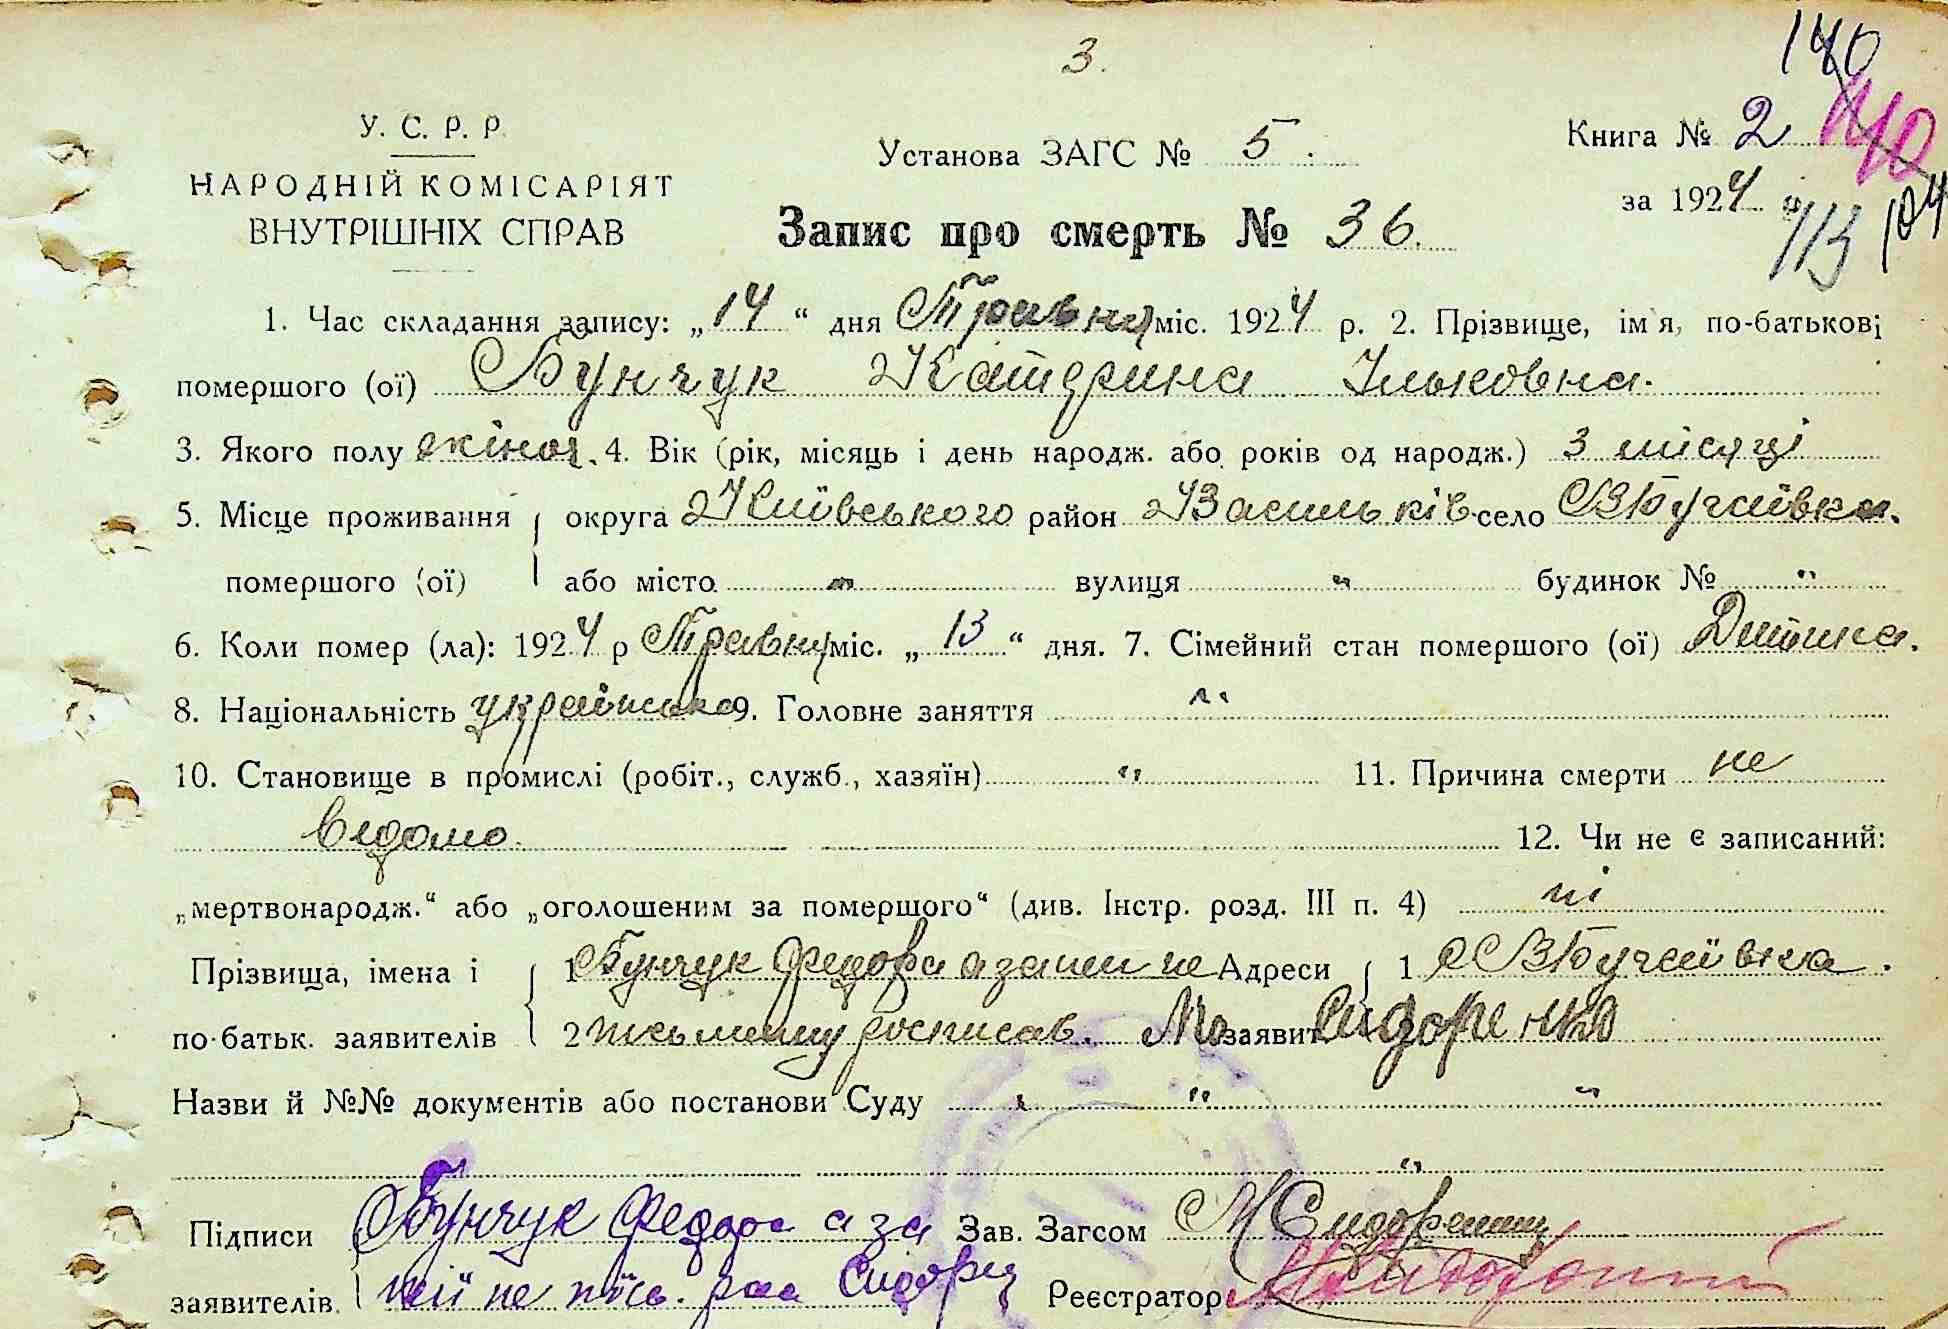 3.
140
У. С. Р. Р.
НАРОДНІЙ КОМІСАРІЯТ
ВНУТРІШНІХ СПРАВ
Установа ЗАГС № 5.
Книга № 2 140
за 1924 р. 113 104
Запис про смерть № 36.
1. Час складання запису: „14“ дня Травня міс. 1924 р. 2. Прізвище, ім'я, по-батькові
помершого (ої) Бунчук Катерина Ільковна.
3. Якого полу жіноч. 4. Вік (рік, місяць і день народж. або років од народж.) 3 місяці
5. Місце проживання округа Київського район Васильків. село В Бугаївка.
помершого (ої) або місто " вулиця " будинок № "
6. Коли помер (ла): 1924 р Травня міс. „13“ дня. 7. Сімейний стан помершого (ої) Дитина.
8. Національність українська 9. Головне заняття "
10. Становище в промислі (робіт., служб., хазяїн) " 11. Причина смерти не
відомо. 12. Чи не є записаний:
„мертвонародж.“ або „оголошеним за помершого“ (див. Інстр. розд. III п. 4) ні
Прізвища, імена і 1 Бунчук Федора а за неї не Адреси 1 В Бугаївка.
по-батьк. заявителів 2 письменну росписав. заявит Сидоренко
Назви й №№ документів або постанови Суду " " "
"
Підписи Бунчук Федора а за Зав. Загсом М Сидоренко
заявителів. неї не пись. рос Сидорен Реєстратор